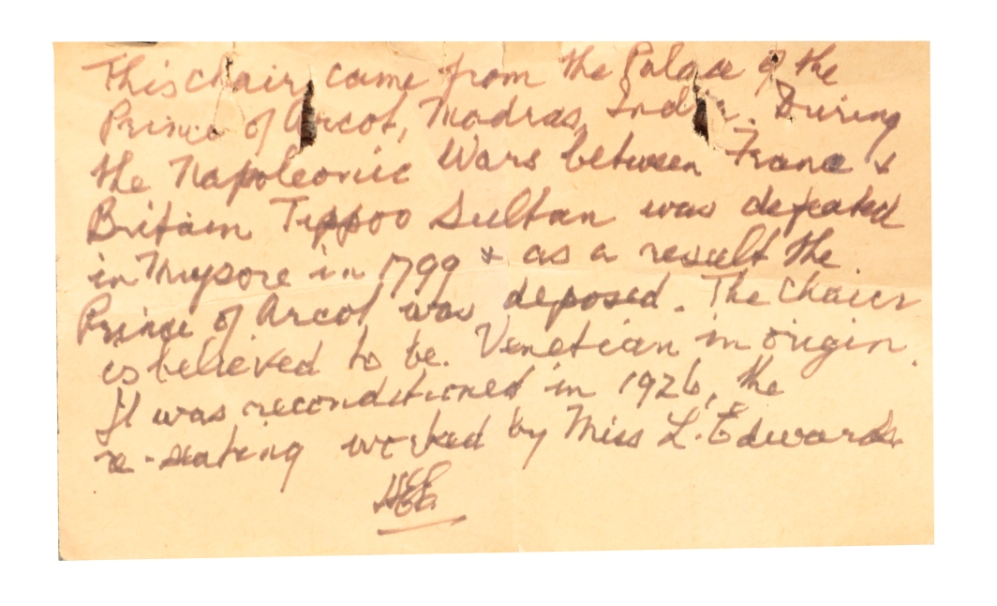 This chair came from the Palace of the
Prince of Arcot, Madras, India. During
the Napoleonic Wars between France &
Britain Tippoo Sultan was defeated
in Mysore in 1799 & as a result the
Prince of Arcot was deposed. The chair
is believed to be. Venetian in origin.
It was reconditioned in 1926, the
re-seating worked by Miss L. Edwards.